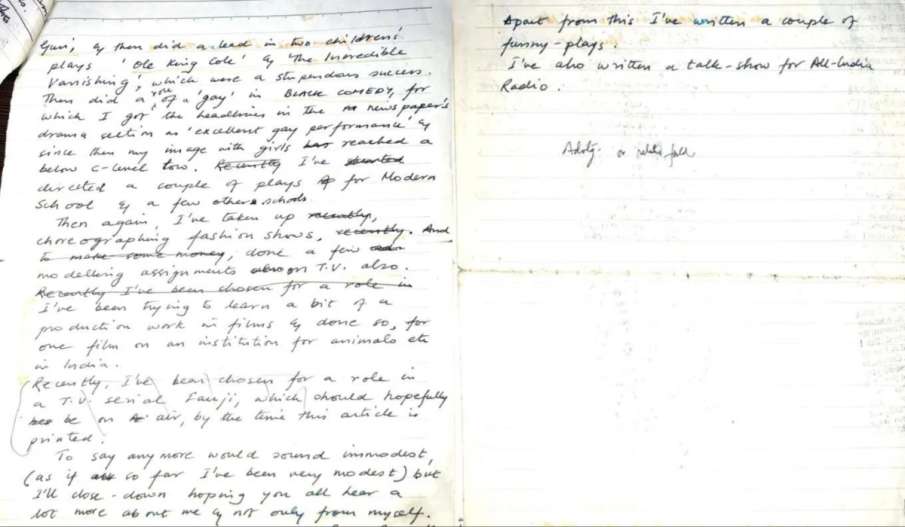 Gun', & then did a lead in two childrens'
plays 'Ole King Cole' & 'The Incredible
Vanishing', which were a stupendous success.
Then did a role of a 'gay' in BLACK COMEDY, for
which I got the headlines in the newspaper's
drama section as 'excellent gay performance' &
since then my image with girls has reached a
below C-level low. Recently I've started
directed a couple of plays for Modern
School & a few other schools.
Then again, I've taken up recently,
choreographing fashion shows, recently. And
to make some money, done a few
modelling assignments also on T.V. also.
Recently I've been chosen for a role in
I've been trying to learn a bit of a
production work in films & done so, for
one film on an institution for animals etc
in India.
(Recently, I've been chosen for a role in
a T.V. serial Fauji, which should hopefully
be on air, by the time this article is
printed.
To say any more would sound immodest,
(as if so far I've been very modest) but
I'll close-down hoping you all hear a
lot more about me & not only from myself.
Apart from this I've written a couple of
funny-plays.
I've also written a talk-show for All-India
Radio.
or